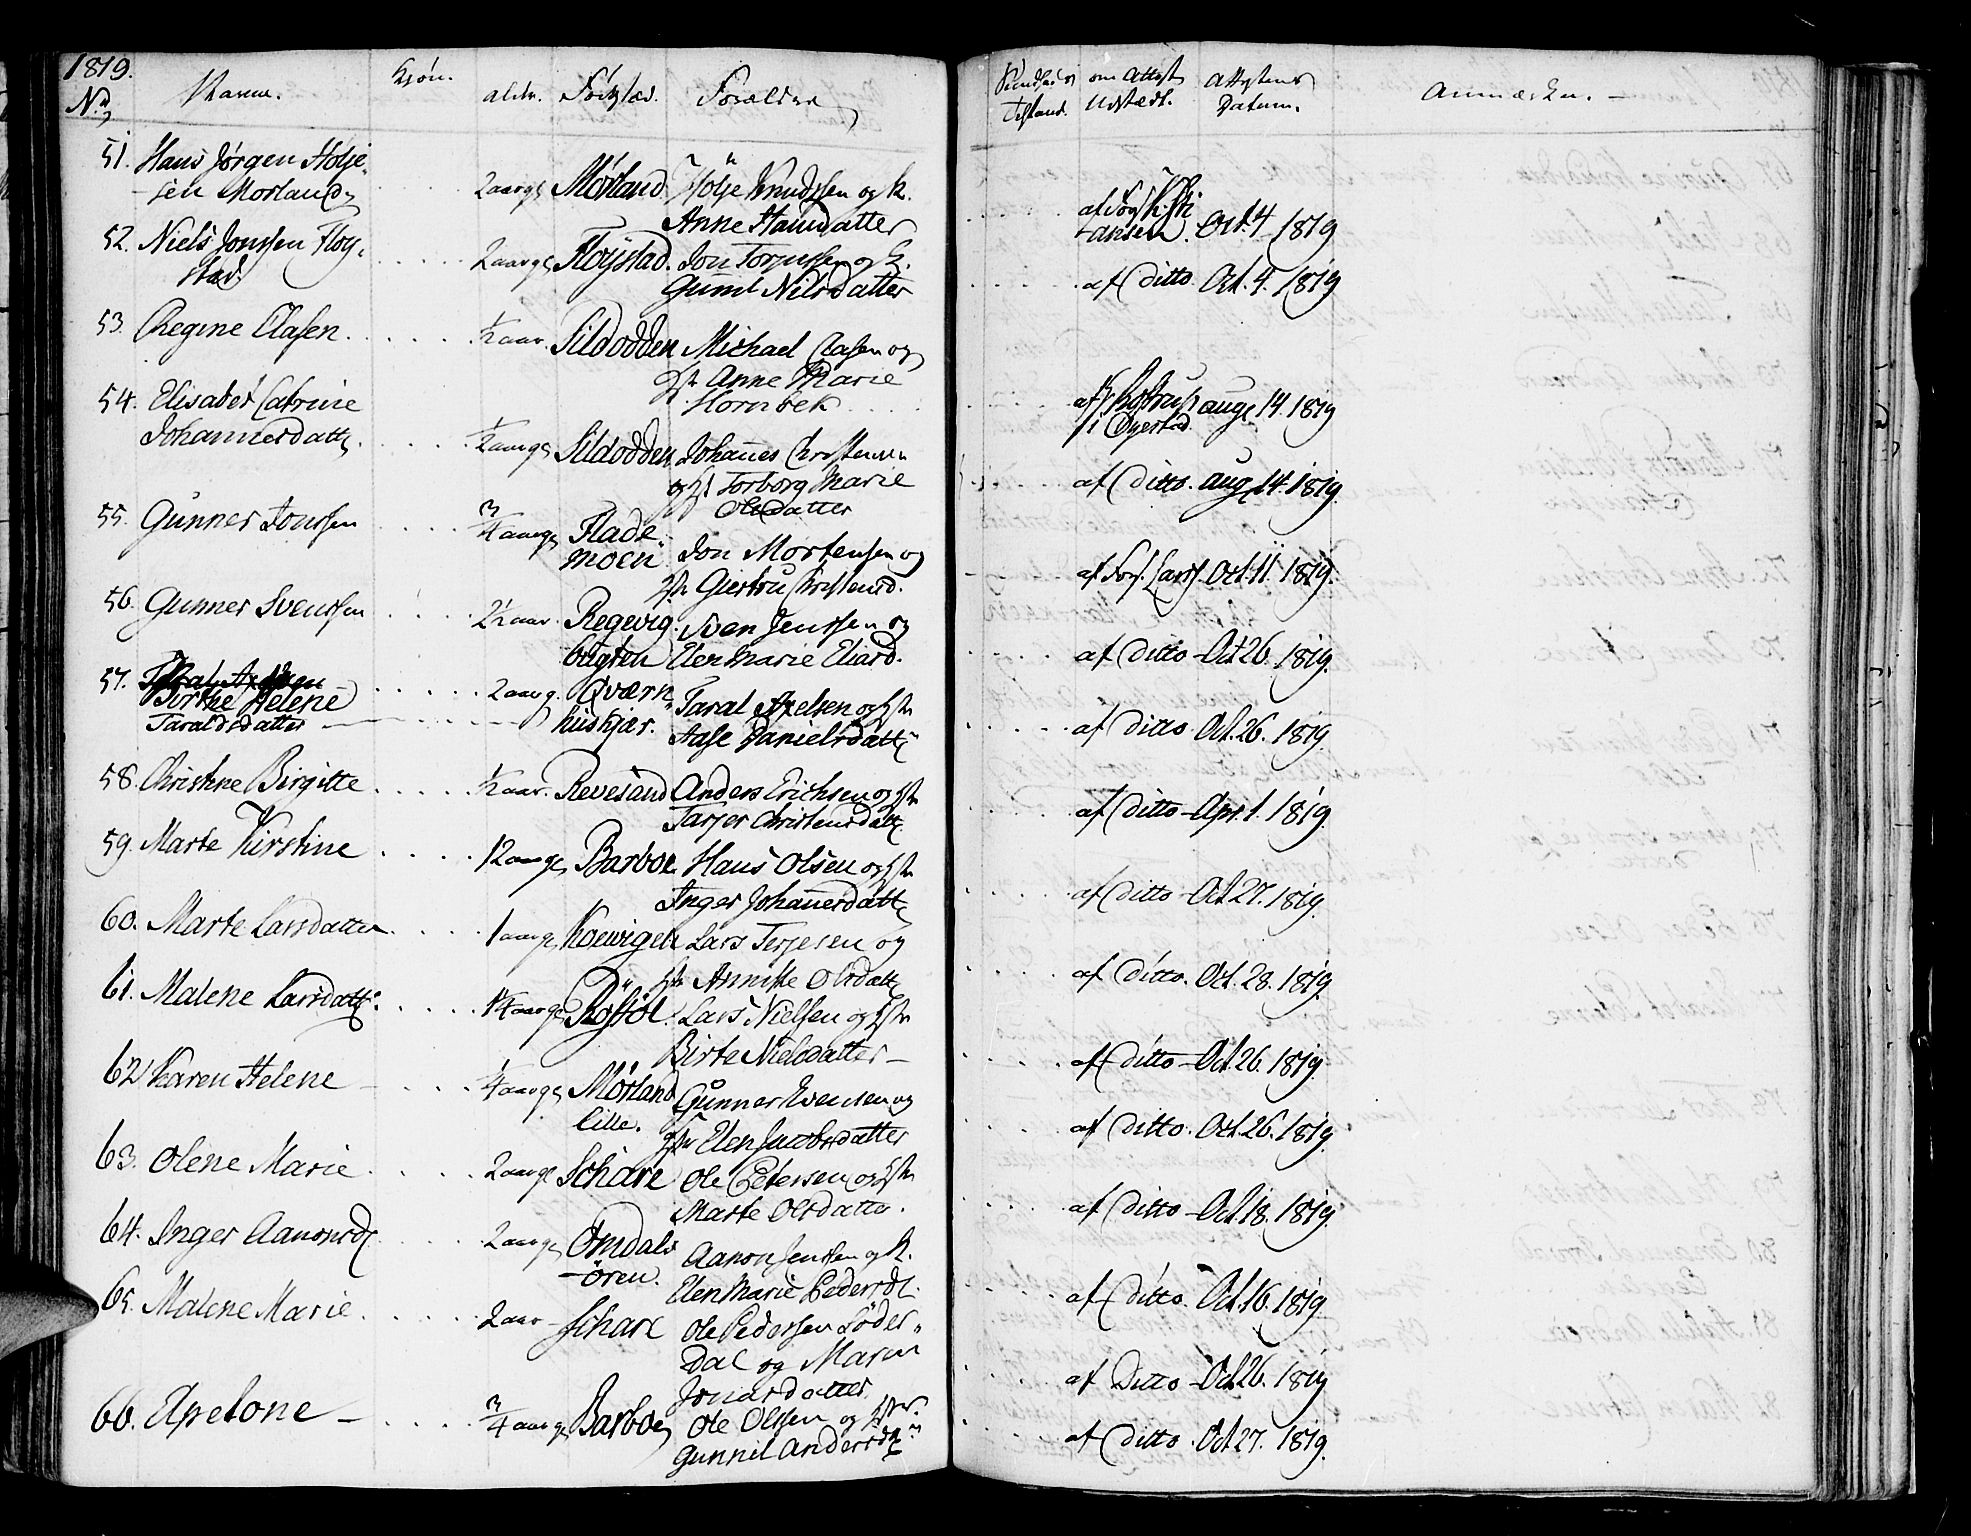 1819.
No Navne. Kiøn. alder. Fødested. Forældre
51. Hans Jørgen Holje-
sen Morland 2 aarge Mørland. Holje Knudssen og K.
Anne Hansdatter
52. Niels Jonssen Floy-
stad 2 aarge Floystad. Jon Torjussen og K.
Gunil Nilsdatter
53. Regine Clasen. ½ aar. Sildodden Michael Clasen og
Hst Anne Marie
Hornbek
54. Elisabet Catrine
Johannesdattr. ½ aarge Sildodden Johanes Christensen
og Hst Torborg Marie
Olsdatter
55. Gunner Jonssen ¾ aarge Flade-
moen Jon Mortensen og
Hst Giertru Christensd.
56. Gunner Svenssen 2½ aar. Regevig-
bugten Sven Jenssen og
Elen Marie Eliasd.
57. Birthe Helene
Taraldsdatter 2 aarg. Qværn-
huskjær. Taral Axelsen og Hst
Aase Danielsdattr
58. Christine Birgitte ½ aar. Revesand Anders Erichsen og Hst
Tarjer Christensdattr
59. Marte Kirstine 12 aarge Barboe Hans Olsen og Hst
Inger Johanesdattr
60. Marte Larsdatter 1 aarg. Koewigen Lars Terjesen og
Hst Annike Olsdattr
61. Malene Larsdattr. 14 aarge Lars Nielsen og Hst
Birte Nielsdatter
62 Karen Helene ¼ aarge Mørland
lille. Gunner Evensen og
Hst Elen Jacobsdatter
63. Olene Marie 2 aarge Schare Ole Petersen og Hst
Marte Olsdatter.
64. Inger Aanonsd. 2 aarge Omdals-
ören. Aanon Jenssen og K.
Elen Marie Pedersdt.
65. Malene Marie 2 aar Schare Ole Pedersen Söder-
Dal og Maren
Jonasdatter
66. Apelone ¾ aarge Barboe Ole Olssen og Hstr.
Gunnil Andersdr
Tilstand. om Attest
Udstædt. Attestens
Datum. Anmærkn.
af Oct. 4 1819
af Ditto. Oct. 4. 1819
af
i Oyestad aug. 14. 1819
af Ditto. aug. 14. 1819.
af Oct. 11. 1819.
af Ditto Oct 26. 1819.
af Ditto. Oct. 26. 1819.
af Ditto Apr. 1. 1819.
af Ditto Oct 27. 1819.
af Ditto. Oct. 28. 1819.
af Ditto Oct. 26. 1819.
af Ditto. Oct. 26. 1819.
af Ditto Oct. 18. 1819.
af Ditto. Oct. 16. 1819.
af Ditto Oct 26. 1819
af Ditto. Oct 27. 1819.